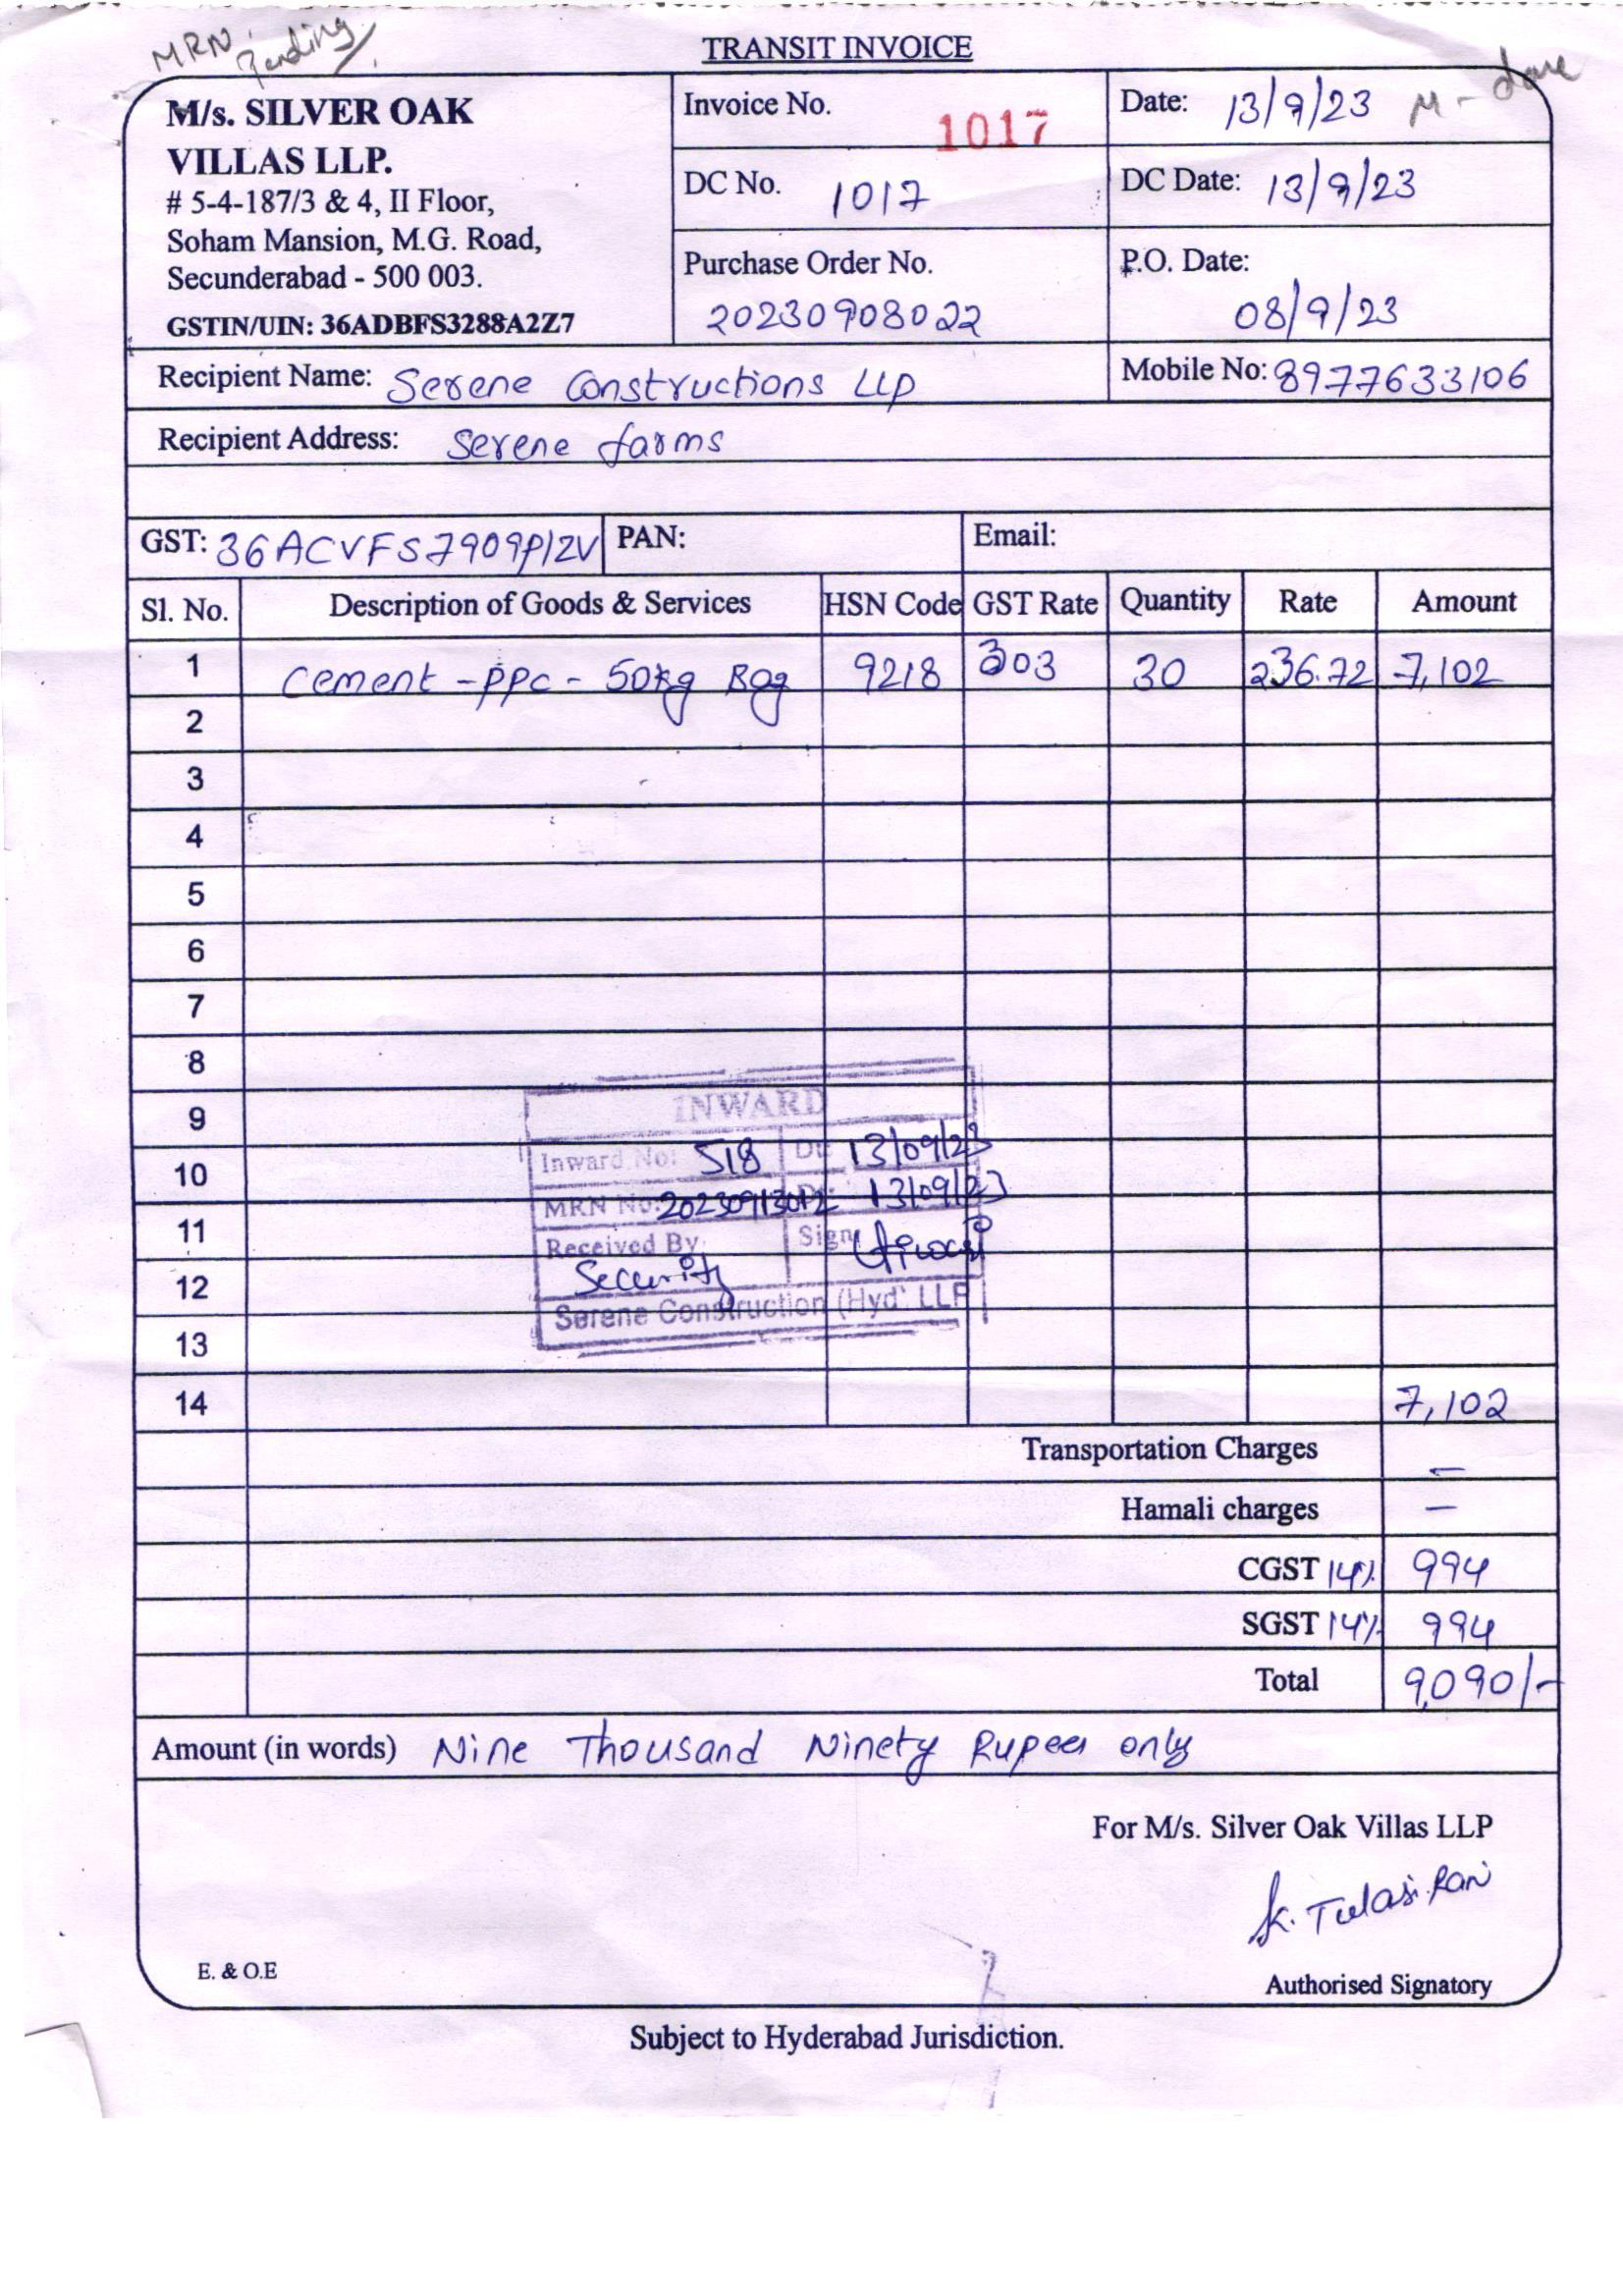 MRN Pending
TRANSIT INVOICE
M - done
M/s. SILVER OAK
VILLAS LLP.
# 5-4-187/3 & 4, II Floor,
Soham Mansion, M.G. Road,
Secunderabad - 500 003.
GSTIN/UIN: 36ADBFS3288A2Z7
Invoice No. 1017
Date: 13/9/23
DC No. 1017
DC Date: 13/9/23
Purchase Order No.
20230908022
P.O. Date:
08/9/23
Recipient Name: Serene Constructions LLP
Mobile No: 8977633106
Recipient Address: Serene farms
GST: 36ACVFS7909P1ZV PAN: Email:
Sl. No. Description of Goods & Services HSN Code GST Rate Quantity Rate Amount
1 Cement - PPC - 50kg Bag 9218 303 30 236.72 7,102
2
3
4
5
6
7
8
9
10
11
12
13
14 7,102
INWARD
Inward No: 518 Dt: 13/09/23
MRN No: 20230913012 Dt: 13/09/23
Received By Sign
Security
Serene Construction (Hyd) LLP
Transportation Charges –
Hamali charges –
CGST 14% 994
SGST 14% 994
Total 9,090/-
Amount (in words) Nine Thousand Ninety Rupees only
For M/s. Silver Oak Villas LLP
K. Tulasi Rani
E. & O.E
Authorised Signatory
Subject to Hyderabad Jurisdiction.